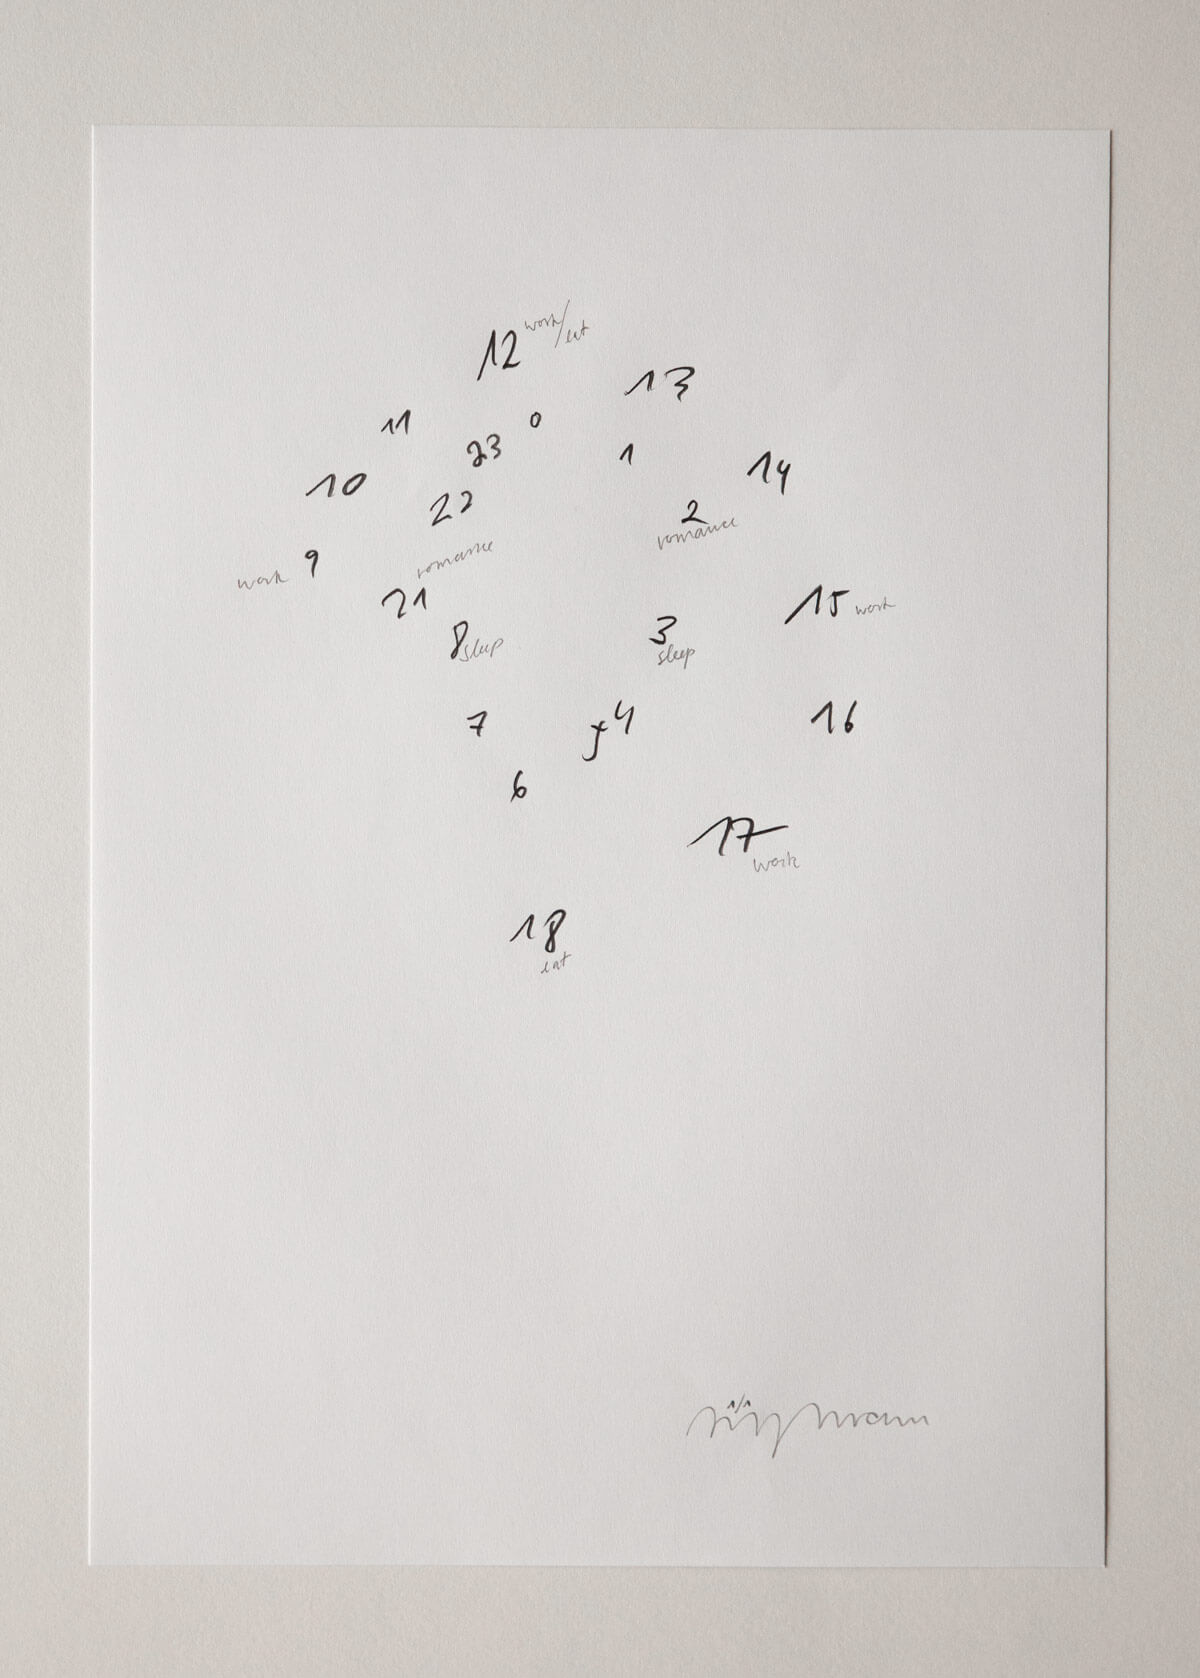 12 work/eat
13
11
0
23
1
14
10
22
2
romance
romance
9 work
21
15 work
8 sleep
3
sleep
7
5 4
16
6
17
work
18
eat
1/1